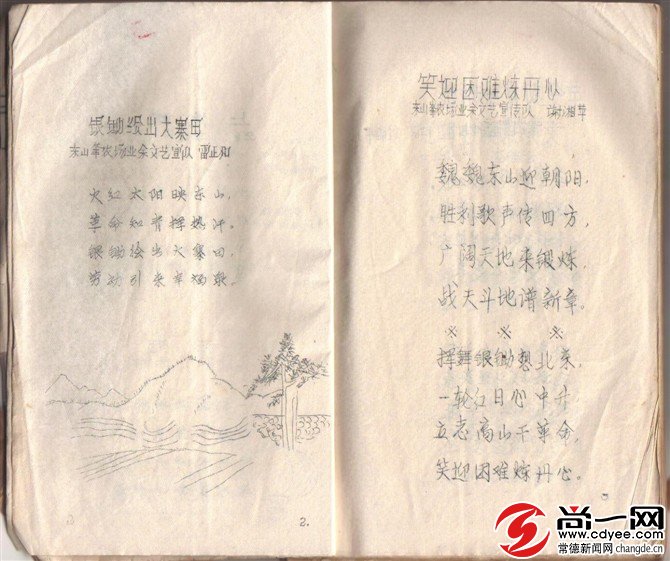 银锄绘出大寨田
东山峯农场业余文艺宣队 雷正和
火红太阳映东山,
革命知青挥热汗。
银锄绘出大寨田,
劳动引来幸福泉。
2.
笑迎困难炼丹心
东山峯农场业余文艺宣传队
巍巍东山迎朝阳,
胜利歌声传四方,
广阔天地来锻炼,
战天斗地谱新章。
※ ※ ※
挥舞银锄想北京,
一轮红日心中升,
立志高山干革命,
笑迎困难炼丹心。
3
尚一网
www.cdyee.com
常德新闻网 changde.cn